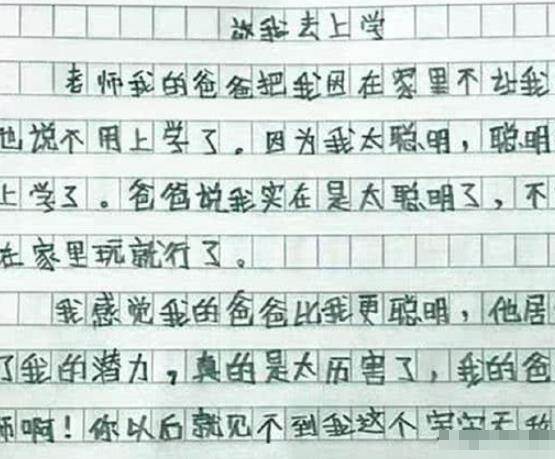 我去上学
老师我的爸爸把我因在家里不让我
也说不用上学了。因为我太聪明，聪明
上学了。爸爸说我实在是太聪明了，不
在家里玩就行了。
我感觉我的爸爸比我更聪明，他居
了我的潜力，真的是太厉害了，我的爸
师啊！你以后就见不到我这个